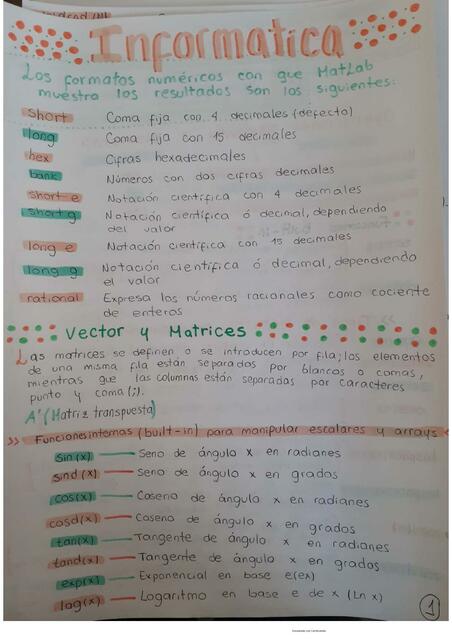 Informatica
Los formatos numéricos con que MatLab
muestra los resultados son los siguientes:
short Coma fija con 4 decimales (defecto)
long Coma fija con 15 decimales
hex Cifras hexadecimales
bank Números con dos cifras decimales
short e Notación científica con 4 decimales
short g Notación científica ó decimal, dependiendo
del valor
long e Notación científica con 15 decimales
long g Notación científica ó decimal, dependiendo
el valor
rational Expresa los números racionales como cociente
de enteros
Vector y Matrices
Las matrices se definen o se introducen por fila; los elementos
de una misma fila están separados por blancos o comas,
mientras que las columnas están separados por caracteres
punto y coma (;).
A' (Matriz transpuesta)
>> Funciones internas (built-in) para manipular escalares y arrays <<
sin(x) — Seno de ángulo x en radianes
sind(x) — Seno de ángulo x en grados
cos(x) — Coseno de ángulo x en radianes
cosd(x) — Coseno de ángulo x en grados
tan(x) — Tangente de ángulo x en radianes
tand(x) — Tangente de ángulo x en grados
exp(x) — Exponencial en base e(ex)
log(x) — Logaritmo en base e de x (Ln x)
1